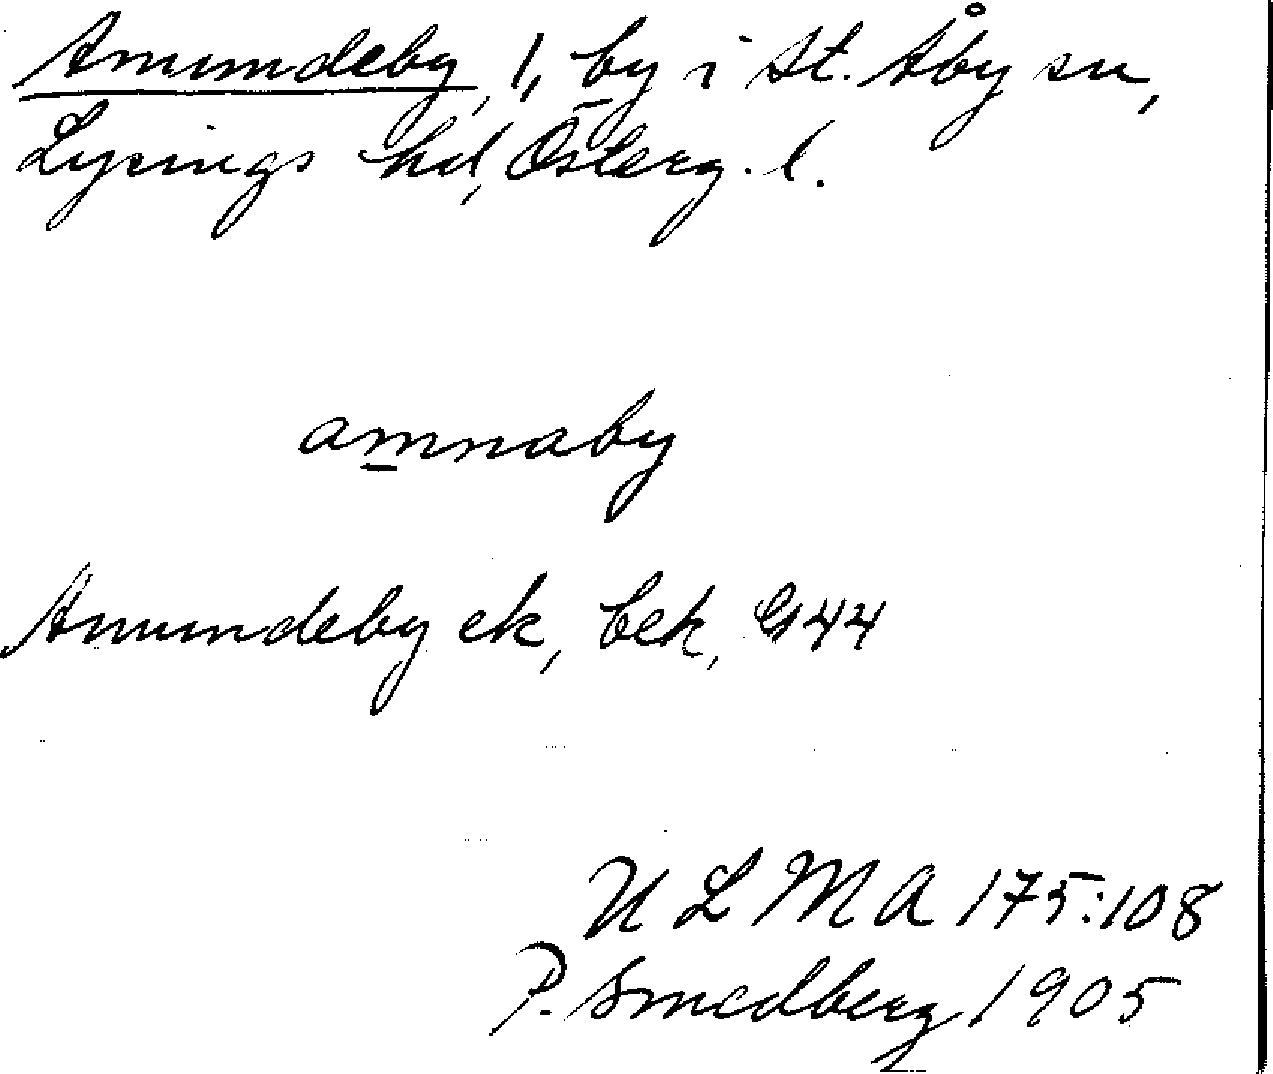 Amundeby, 1, by i St. Åby sn,
Lysings hd, Österg. l.
amnaby
Amundeby ek, bek, G44
ULMA 175:108
P. Smedberg 1905